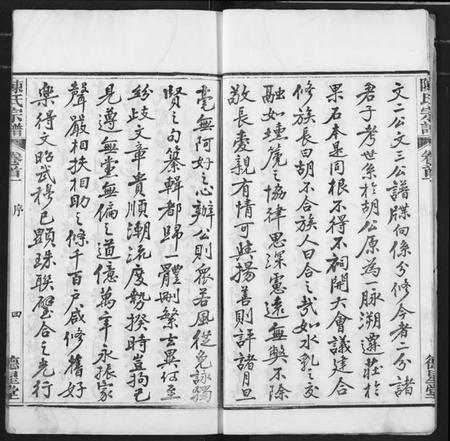 陳氏宗譜
卷首
文二公文三公譜牒向係分修今者二分諸
君子考世系於胡公原為一脉溯遷莊於
果石本是同根不得不祠開大會議建合
修族長曰胡不合族人曰合之哉如水乳之交
融如壎箎之協律思深憲遠無弊不除
敬長愛親有情可聯揚善則評諸月旦
毫無阿好之心辦公則眾若風從免詠獨
賢之句纂輯都歸一體刪繁去異何至
紛歧文章貴順潮流度勢揆時豈拘已
見遵無黨無偏之道億萬年永振家
聲嚴相扶相助之條千百戶咸修舊好
樂得文昭武穆已顯珠聯璧合之光行
陳氏宗譜
卷首
序
四
德星堂
德星堂